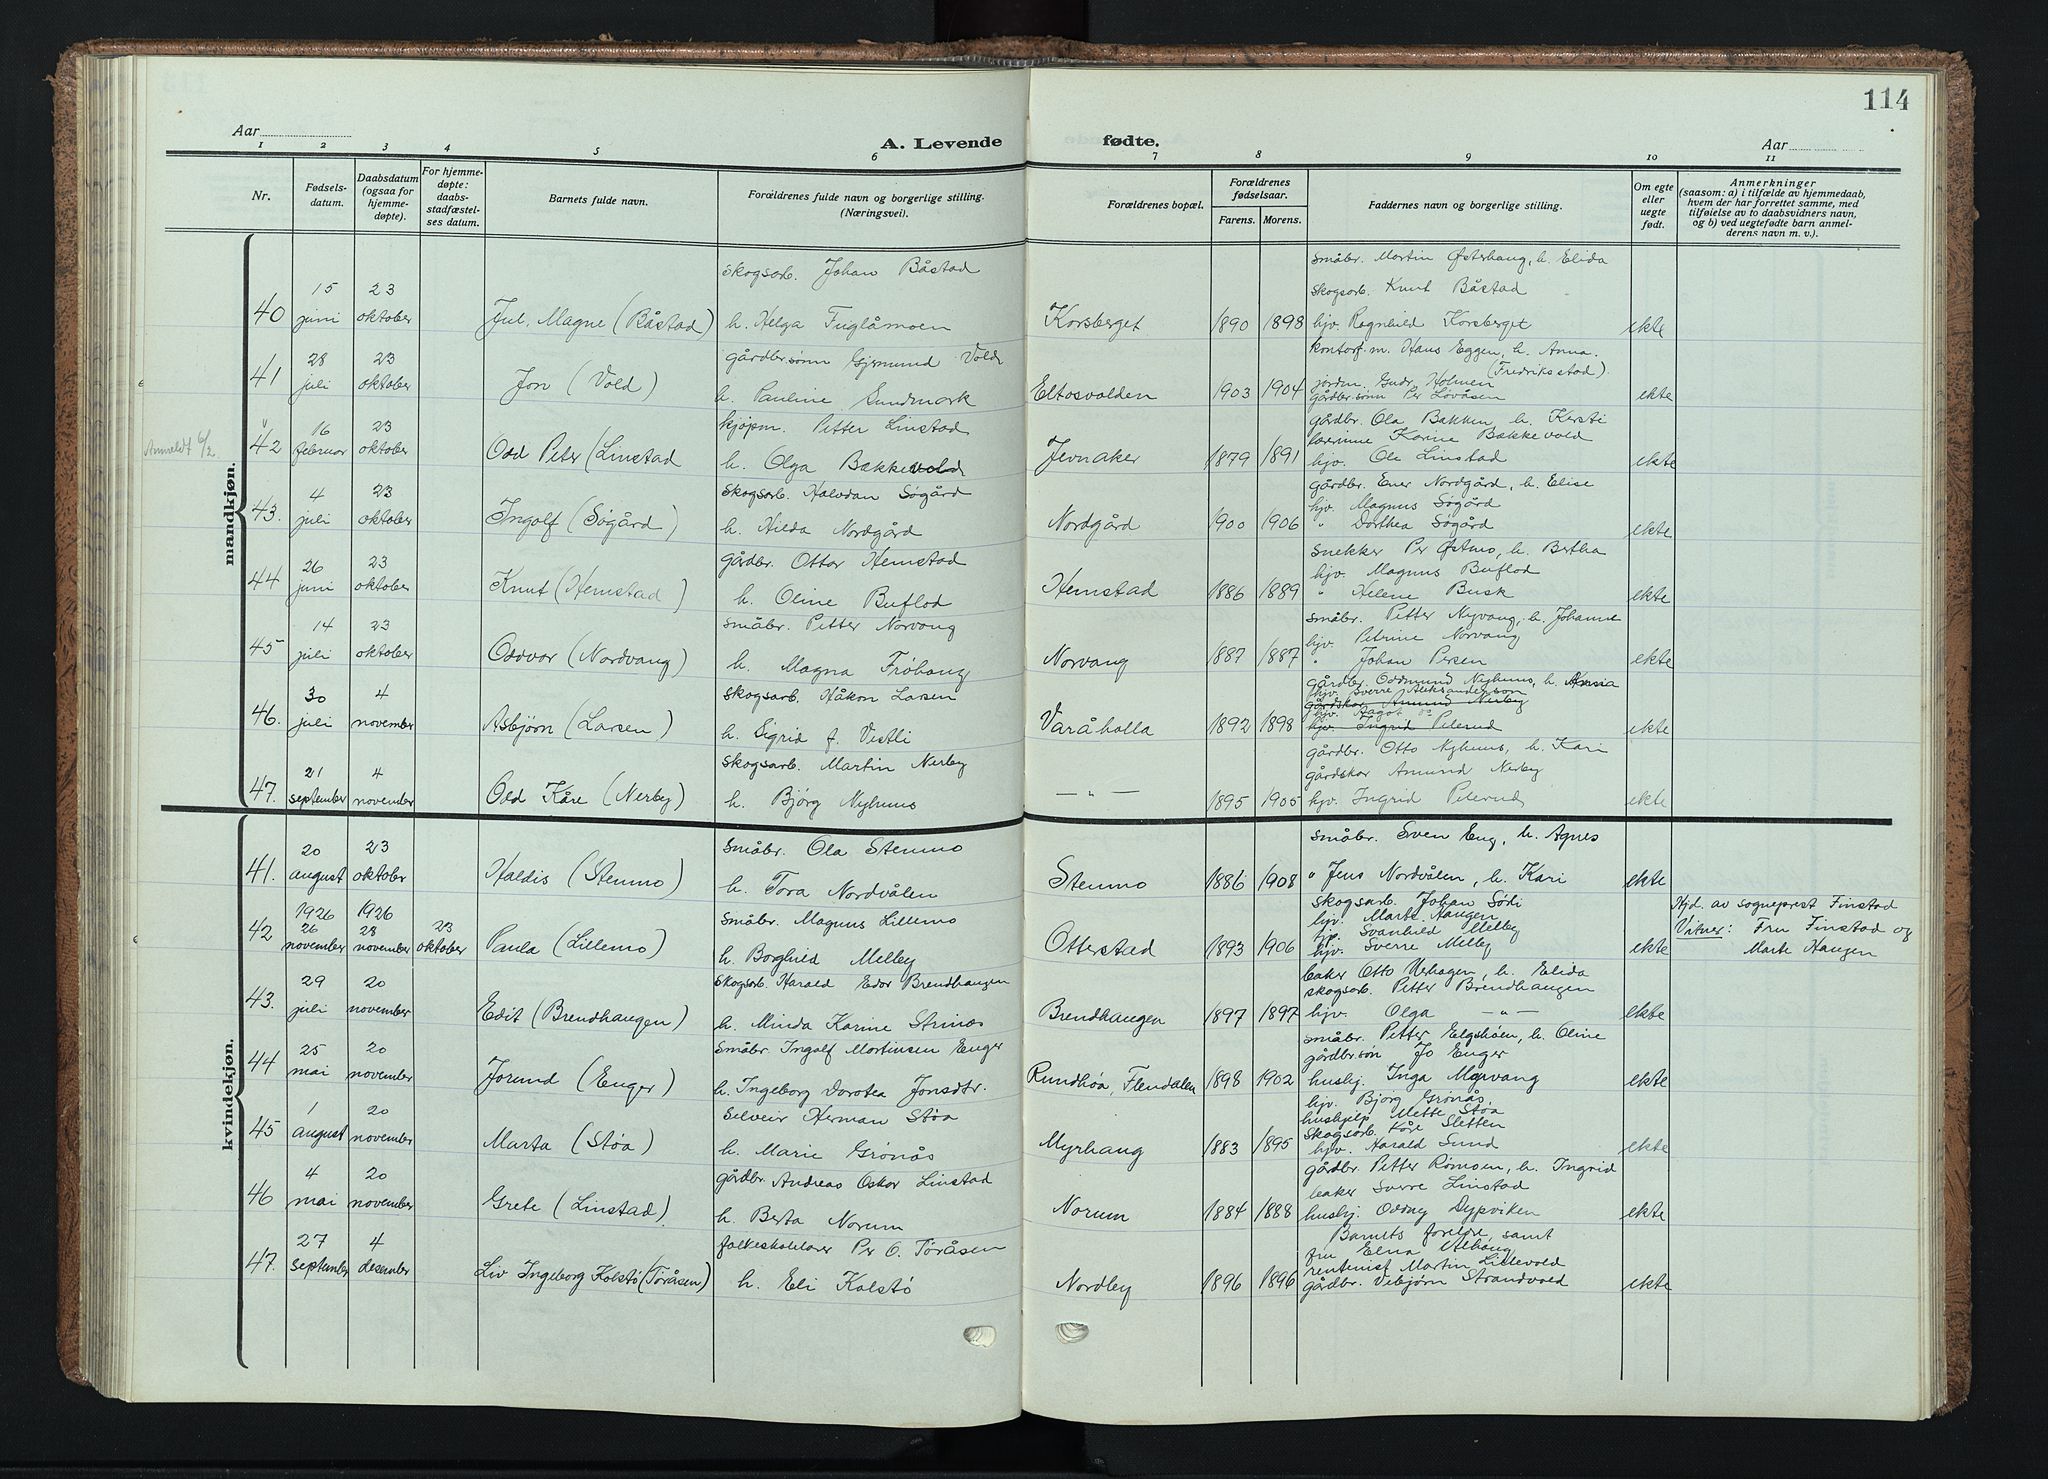 114
Aar
A. Levende fødte.
Aar
1 2 3 4 5 6 7 8 9 10 11
Nr.
Fødsels-
datum.
Daabsdatum
(ogsaa for
hjemme-
døpte).
For hjemme-
døpte:
daabs-
stadfæstel-
ses datum.
Barnets fulde navn.
Forældrenes fulde navn og borgerlige stilling.
(Næringsvei).
Forældrenes bopæl.
Forældrenes
fødselsaar.
Farens. Morens.
Faddernes navn og borgerlige stilling.
Om egte
eller
uegte
født.
Anmerkninger
(saasom: a) i tilfælde av hjemmedaab,
hvem der har forrettet samme, med
tilføielse av to daabsvidners navn,
og b) ved uegtefødte barn anmel-
derens navn m. v.).
mandkjøn.
40 15 juni 23 oktober Jul. Magne (Båstad)
skogsarb. Johan Båstad
h. Helga Fuglåmoen
Korsberget 1890 1898
småbr. Martin Østerhaug, h. Elida
skogsarb. Knut Båstad
hjv. Ragnhild Korsberget
ekte
41 28 juli 23 oktober Jon (Vold)
gårdbr.sønn Gjermund Vold
h. Pauline Sundmark
Eltosvolden 1903 1904
kontorf.m. Hans Eggen, h. Anna.
(Fredriksstad).
jordm. Gudr. Holmen
gårdbr.sønn Per Løvåsen
ekte
Anmeldt 6/2
42 16 februar 23 oktober Odd Peter (Linstad
kjøpm. Petter Linstad
h. Olga Bækkevold
Jevnaker 1879 1891
gårdbr. Ola Bakken, h. Kersti
lærerinne Karine Bækkevold
hjv. Ole Linstad
ekte
43. 4 juli 23 oktober Ingolf (Søgård)
skogsarb. Halvdan Søgård
h. Hilda Nordgård
Nordgård 1900 1906
gårdbr. Ener Nordgård, h. Elise
hjv. Magnus Søgård
" Dorthea Søgård
ekte
44 26 juni 23 oktober Knut (Hemstad)
gårdbr. Ottar Hemstad
h. Oline Buflod
Hemstad 1886 1889
snekker Per Østmo, h. Bertha
hjv. Magnus Buflod
" Helene Busk
ekte
45 14 juli 23 oktober Oddvar (Nordvang)
småbr. Petter Norvang
h. Magna Frøhaug
Norvang 1887 1887
småbr. Petter Nyvang, h. Johanne
hjv. Petrine Norvang
" Johan Persen
ekte
46. 30 juli 4 november Asbjørn (Larsen)
skogsarb. Håkon Larsen
h. Sigrid f. Vestli
Varåholla 1892 1898
gårdbr. Oddmund Nyhuus, h.
hjv. Sverre Aleksanderson
gårdskar Amund Nerby
hjv. Aagot
hjv. Ingrid Peterud
ekte
47. 21 september 4 november Odd Kåre (Nerby)
skogsarb. Martin Nerby
h. Bjørg Nyhuus
— " — 1895 1905
gårdbr. Otto Nyhuus, h. Kari
gårdskar Amund Nerby
hjv. Ingrid Peterud
ekte
kvindekjøn.
41. 20 august 23 oktober Haldis (Stenmo)
småbr. Ola Stenmo
h. Tora Nordvålen
Stenmo 1886 1908
småbr. Sven Eng, h. Agnes
" Jens Nordvålen, h. Kari
ekte
42 1926 26 november 1926 28 november 23 oktober Paula (Lillemo)
småbr. Magnus Lillemo
h. Borghild Melby
Otterstad 1893 1906
skogsarb. Johan Sørli
hjv. Marte Haugen
hjv. Svanhild Melby
hjv. Sverre Melby
ekte
Hjd. av sogneprest Finstad
Vitner: Fru Finstad og
Marte Haugen
43. 29 juli 20 november Edit (Brendhaugen)
skogsarb. Harald Edor Brendhaugen
h. Minda Karine Strinas
Brendhaugen 1897 1897
baker Otto Uthagen, h. Elida
skogsarb. Petter Brendhaugen
hjv. Olga — " —
ekte
44 25 mai 20 november Jorund (Enger)
småbr. Ingolf Mortinsen Enger
h. Ingeborg Dorotea Jonsdtr.
Rundhøa, Flendalen 1898 1902
småbr. Petter Elgshøen, h. Oline
gårdbr.søn Jo Enger
hushj. Inga Morvang
ekte
45 1 august 20 november Marta (Støa)
selveier Herman Støa
h. Marie Grønås
Myrhaug 1883 1895
hjv. Bjorg Grønås.
hushjelp Mette Støa
skogsarb. Kåre Sletten
hjv. Harald Sund
ekte
46 4 mai 20 november Grete (Linstad)
gårdbr. Andreas Oskar Linstad
h. Berta Norum
Norum 1884 1888
gårdbr. Petter Rømoen, h. Ingrid
baker Sverre Linstad
hushj. Oddny Dypviken
ekte
47. 27 september 4 desember Liv Ingeborg Kolstø (Toråsen)
folkeskolelærer Per O. Toråsen
h. Eli Kolstø
Nordby 1896 1896
Barnets foreldre, samt
fru Elna Ulhaug
rentenist Martin Lillevold
gårdbr. Vebjørn Strandvold
ekte